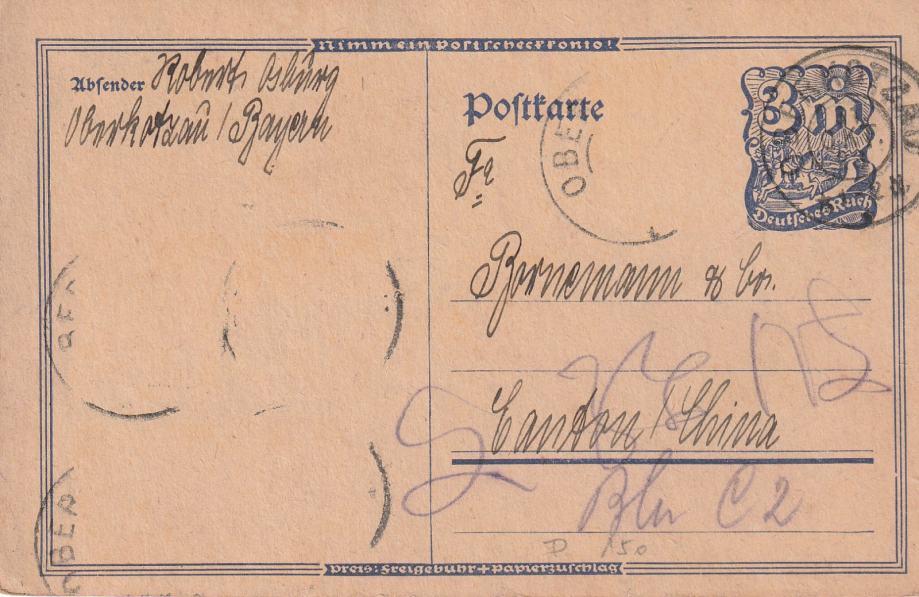 Nimm ein Postscheckkonto!
Absender Robert Osburg
Oberkotzau / Bayern
Postkarte
3 M
Deutsches Reich
OBE
OTZAU
Fa
Bornemann & Co.
Canton / China
Bln C 2
P 150
BER
OBER
Preis: Freigebühr + Papierzuschlag